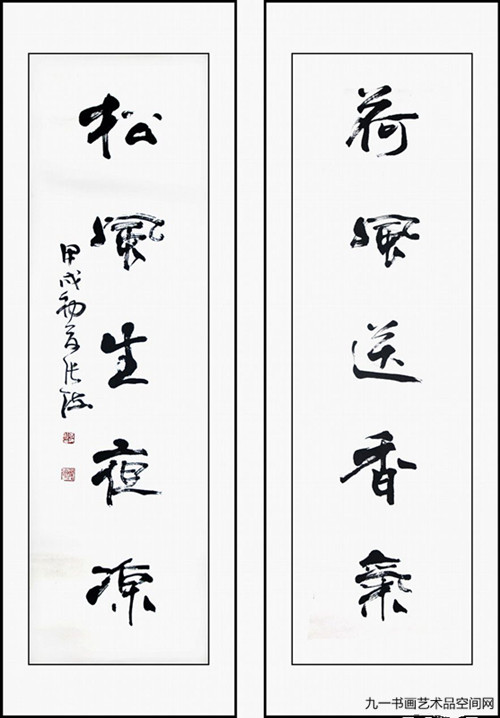 荷風送香氣
松風生夜凉
甲戌初夏張
九一书画艺术品空间网